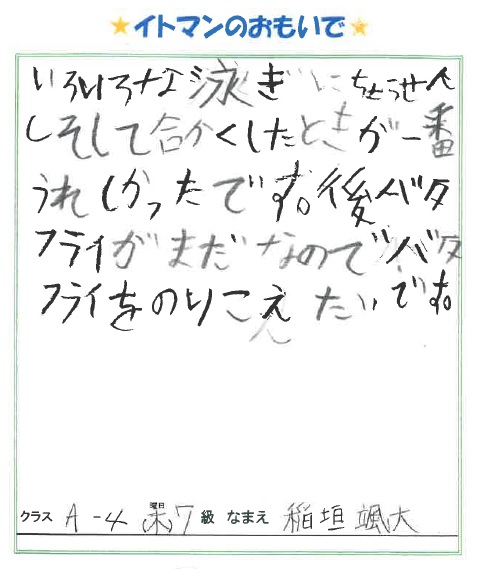 ★イトマンのおもいで★
いろいろな泳ぎにちょうせん
しそして合かくしたときが一番
うれしかったです。後バタ
フライがまだなのでバタ
フライをのりこえたいです。
クラス A-4 曜日 7級 なまえ 稲垣颯大